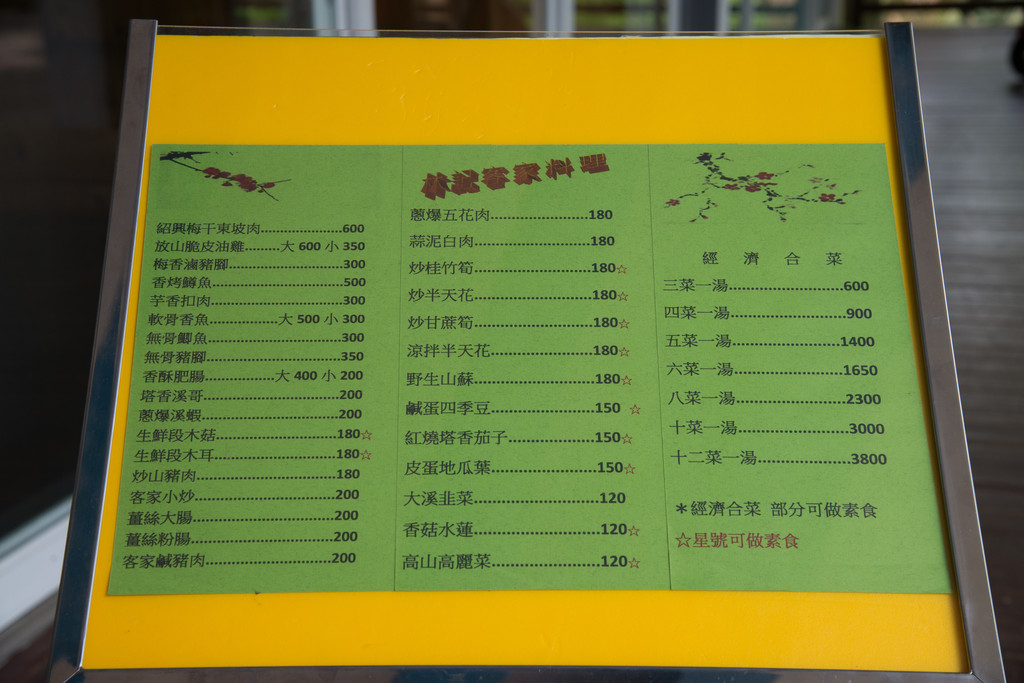 紹興梅干東坡肉....................600
放山脆皮油雞.........大 600 小 350
梅香滷豬腳..................................300
香烤鱒魚......................................500
芋香扣肉......................................300
軟骨香魚..................大 500 小 300
無骨鯽魚......................................300
無骨豬腳......................................350
香酥肥腸..................大 400 小 200
塔香溪哥......................................200
蔥爆溪蝦......................................200
生鮮段木菇..............................180☆
生鮮段木耳..............................180☆
炒山豬肉......................................180
客家小炒......................................200
薑絲大腸......................................200
薑絲粉腸......................................200
客家鹹豬肉..................................200
蔥爆五花肉........................180
蒜泥白肉............................180
炒桂竹筍............................180☆
炒半天花............................180☆
炒甘蔗筍............................180☆
涼拌半天花........................180☆
野生山蘇............................180☆
鹹蛋四季豆........................150 ☆
紅燒塔香茄子....................150☆
皮蛋地瓜葉........................150☆
大溪韭菜............................120
香菇水蓮............................120☆
高山高麗菜........................120☆
經 濟 合 菜
三菜一湯............................600
四菜一湯............................900
五菜一湯..........................1400
六菜一湯..........................1650
八菜一湯..........................2300
十菜一湯..........................3000
十二菜一湯......................3800
＊經濟合菜 部分可做素食
☆星號可做素食